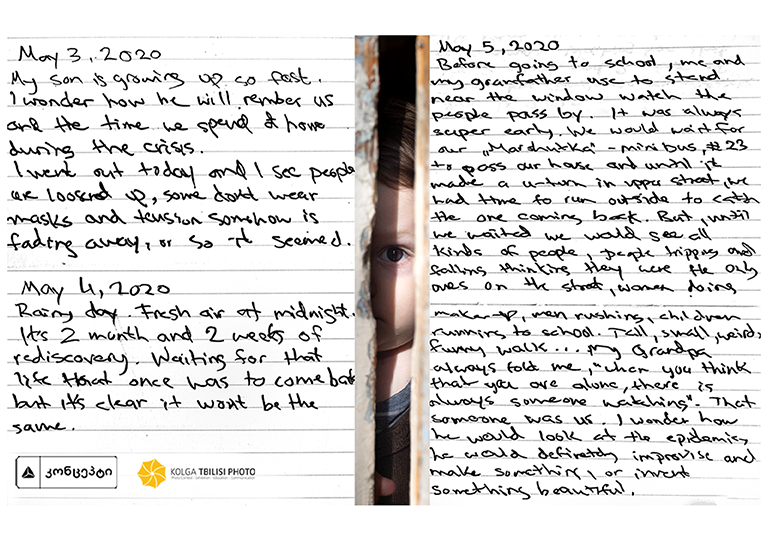 May 3, 2020
My son is growing up so fast.
I wonder how he will rember us
and the time we spend @ home
during the crisis.
I went out today and I see people
are loosend up, some dont wear
masks and tension somehow is
fading away, or so it seemed.
May 4, 2020
Rainy day. Fresh air at midnight.
It's 2 month and 2 weeks of
rediscovery. Waiting for that
life that once was to come back
but it's clear it wont be the
same.
კონცეპტი
KOLGA TBILISI PHOTO
May 5, 2020
Before going to school, me and
my grandfather use to stend
near the window watch the
people pass by. It was always
super early. We would wait for
our „Marshutka" - minibus, #23
to pass our house and until it
made a u-turn in uppa street, we
had time to run outside to catch
the one coming back. But, until
we waited we would see all
kinds of people, people tripping and
falling thinking they were the only
ones on the street, women doing
make-up, men rushing, children
running to school. Tall, small, weird,
funny walk... my Grandpa
always told me, "when you think
that you are alone, there is
always someone watching". That
someone was us. I wonder how
he would look at the epidemic,
he would definetely improvise and
make something, or invent
something beautiful.